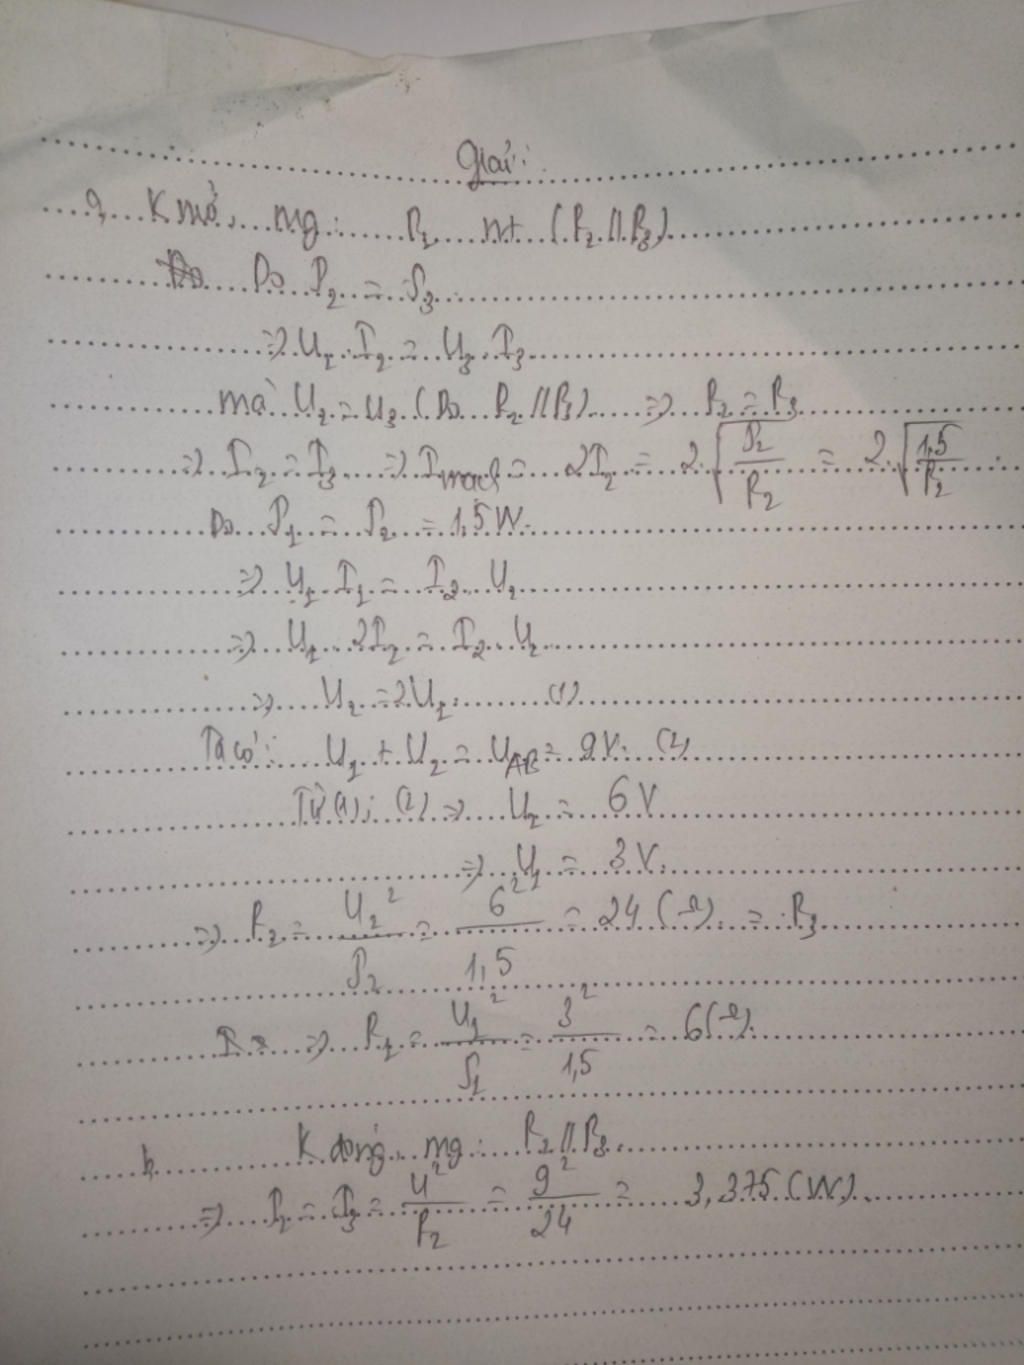 Giải:
a, K mở, mg: R1 nt (R2 // R3)
Do P2 = P3
=> U2.I2 = U3.I3
mà U2 = U3 (Do R2 // R3) => R2 = R3
=> I2 = I3 => Imạch = 2I2 = 2.√(P2/R2) = 2.√(1,5/R2)
Do P1 = P2 = 1,5W.
=> U1.I1 = I2.U2
=> U1.2I2 = I2.U2
=> U2 = 2U1. (1)
Ta có: U1 + U2 = UAB = 9V. (2)
Từ (1); (2) => U2 = 6V
=> U1 = 3V.
=> R2 = U2²/P2 = 6²/1,5 = 24 (Ω). = R3
=> R1 = U1²/P1 = 3²/1,5 = 6(Ω).
b, K đóng, mg: R2 // R3.
=> P2 = P3 = U²/R2 = 9²/24 = 3,375 (W).